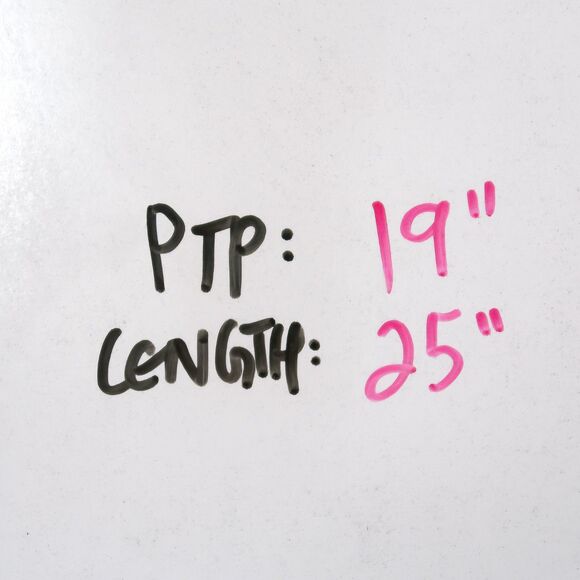 PTP: 19"
LENGTH: 25"